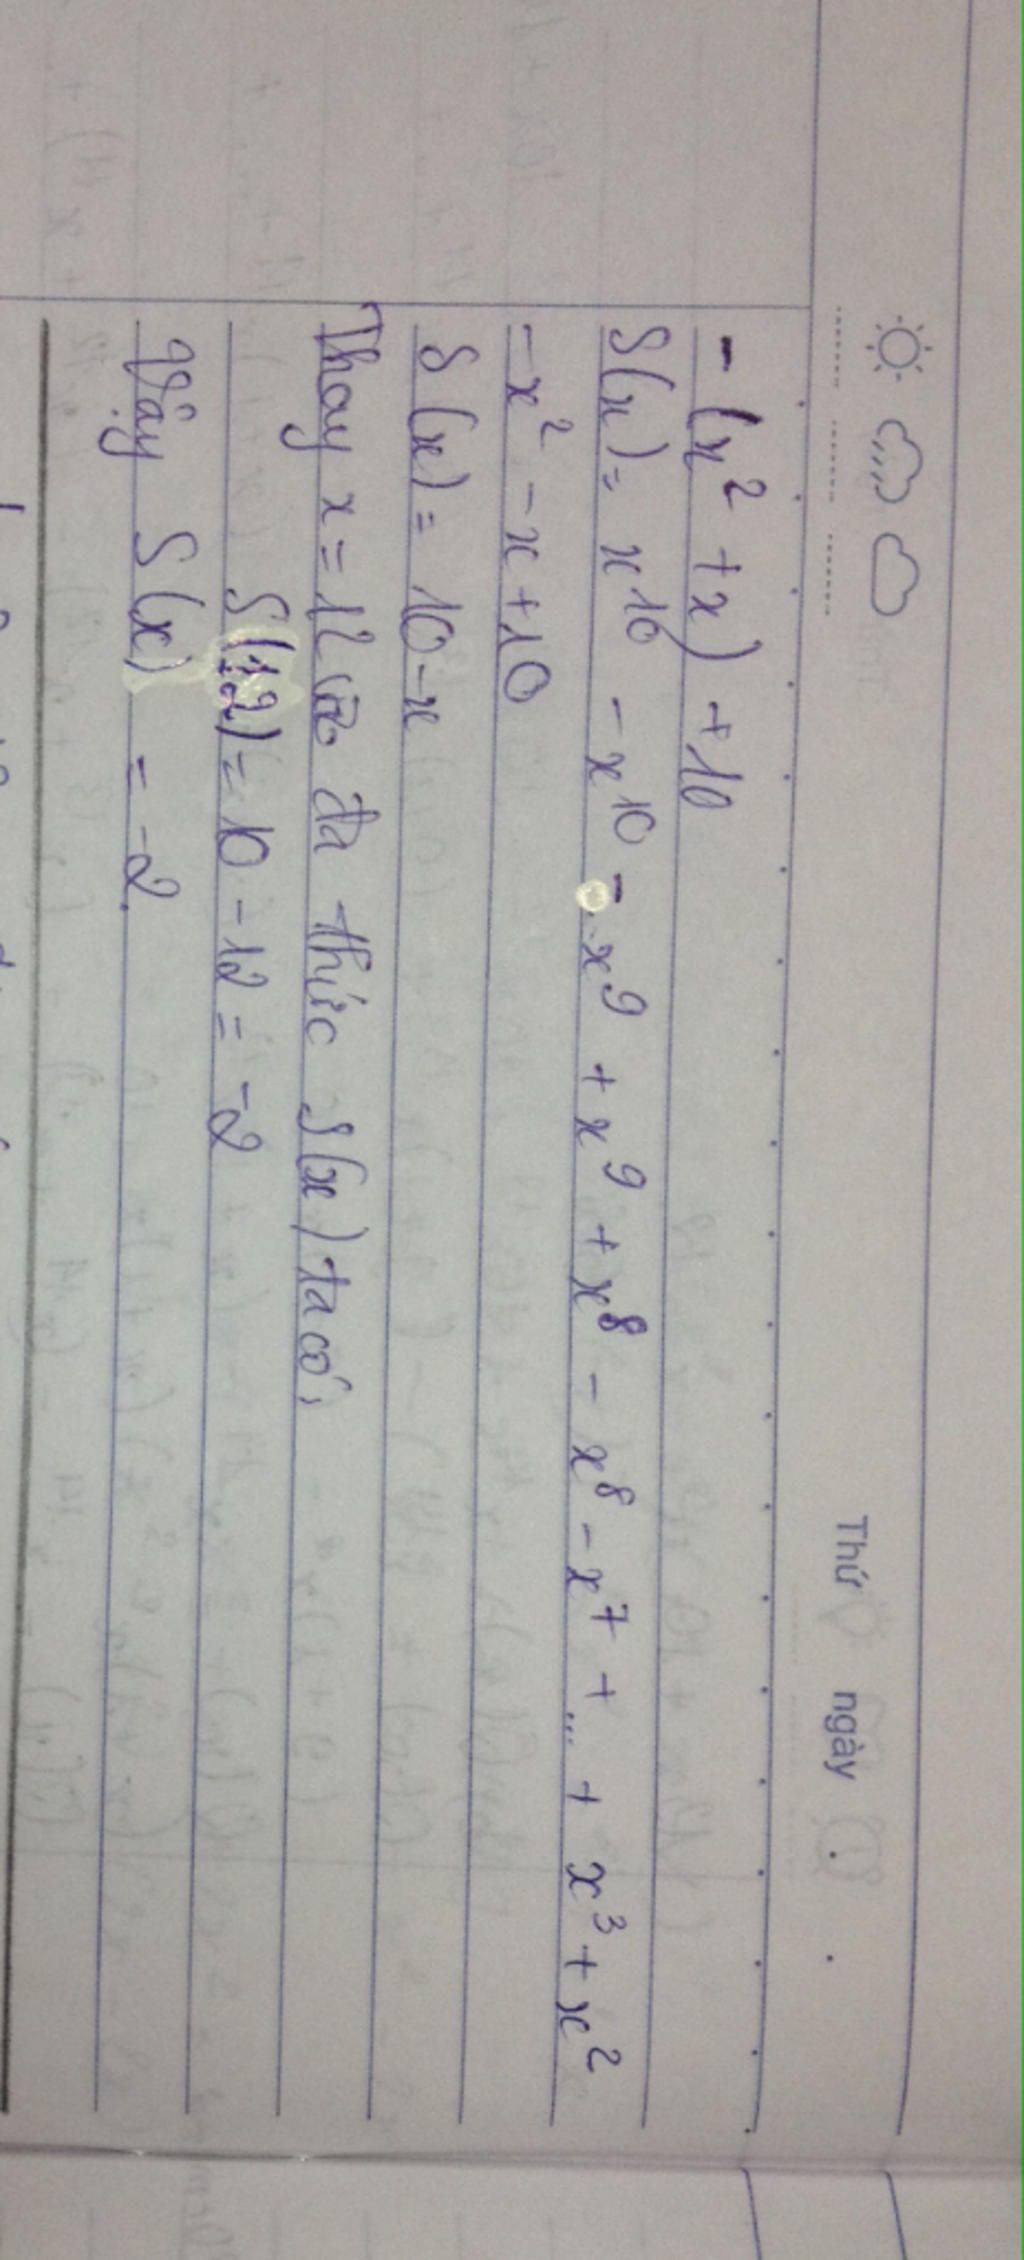 Thứ ngày
- (x² + x) + 10
S(x) = x¹⁰ - x¹⁰ - x⁹ + x⁹ + x⁸ - x⁸ - x⁷ + ... + x³ + x²
- x² - x + 10
S(x) = 10 - x
Thay x = 12 vào đa thức S(x) ta có,
S(12) = 10 - 12 = -2
Vậy S(x) = -2.